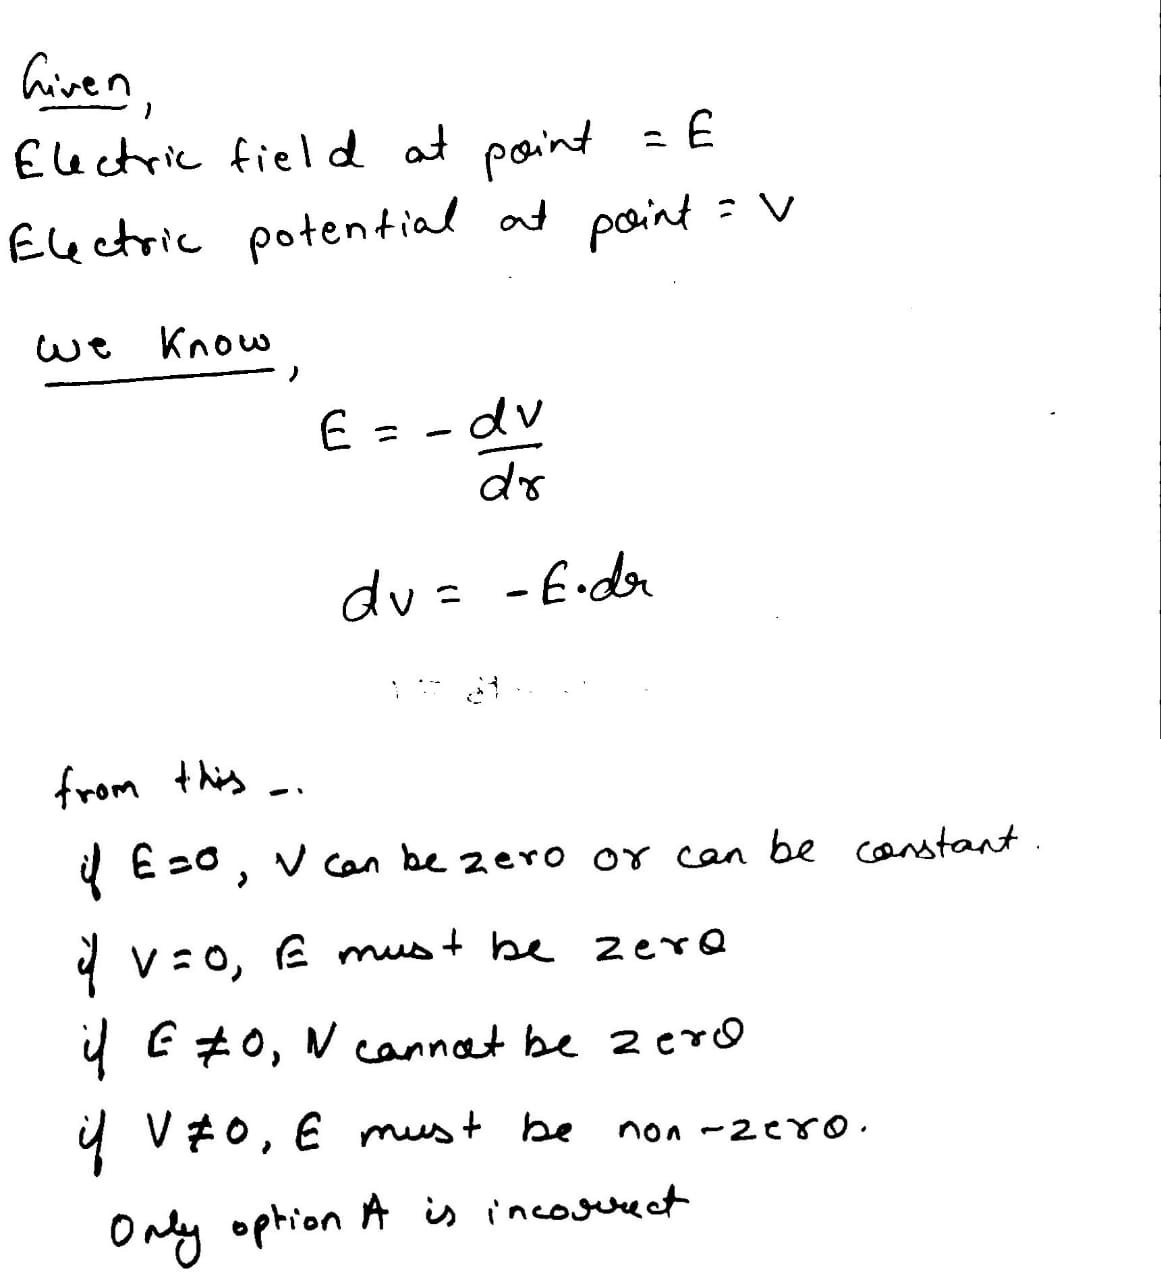 Given,
Electric field at point = E
Electric potential at point = V
we Know,
E = - dv
dr
dv = - E.dr
from this -.
if E=0, V can be zero or can be constant.
if V=0, E must be zero
if E ≠ 0, V cannot be zero
if V ≠ 0, E must be non-zero.
Only option A is incorrect